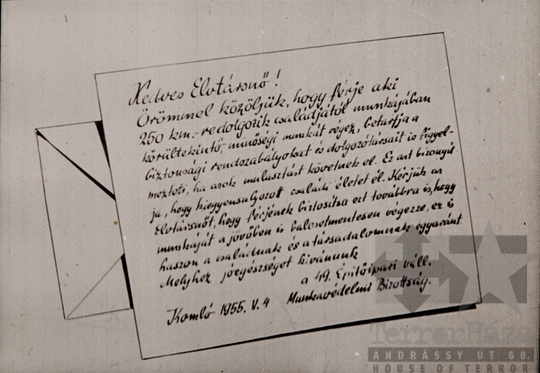 Kedves Elvtársnő!
Örömmel közöljük, hogy férje aki
250 km.-re dolgozik családjától munkájában
körültekintő, minőségi munkát végez, betartja a
biztonsági rendszabályokat és dolgozótársait is figyel-
mezteti, ha azok mulasztást követnek el. Ez azt bizonyít
ja, hogy kiegyensúlyozott családi életet él. Kérjük az
Elvtársnőt, hogy férjének biztosítsa ezt továbbra is, hogy
munkáját a jövőben is balesetmentesen végezze, ez is
haszon a családnak és a társadalomnak egyaránt
Melyhez jóegészséget kívánunk
a 49. Építőipari váll.
Komló 1955. V. 4 Munkavédelmi Bizottság.
TerrorHáza
ANDRÁSSY ÚT 60.
HOUSE OF TERROR